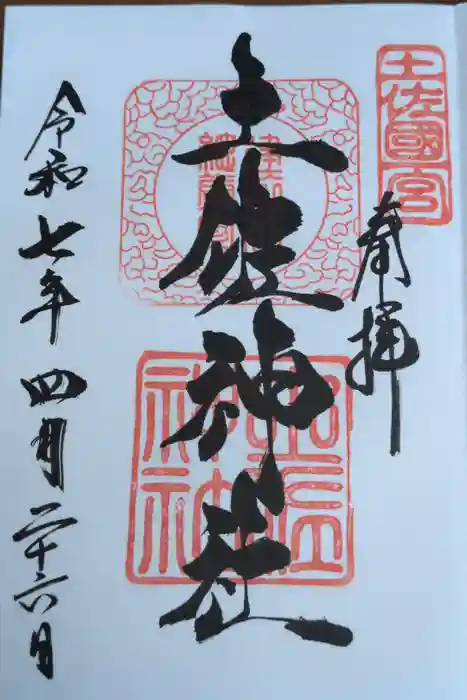 土佐國宮
奉拝
土佐神社
土佐
神社
令和七年四月二十六日